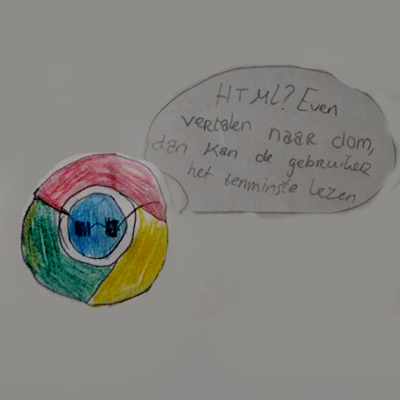 HTML? Even
vertalen naar dom,
dan kan de gebruiker
het tenminste lezen